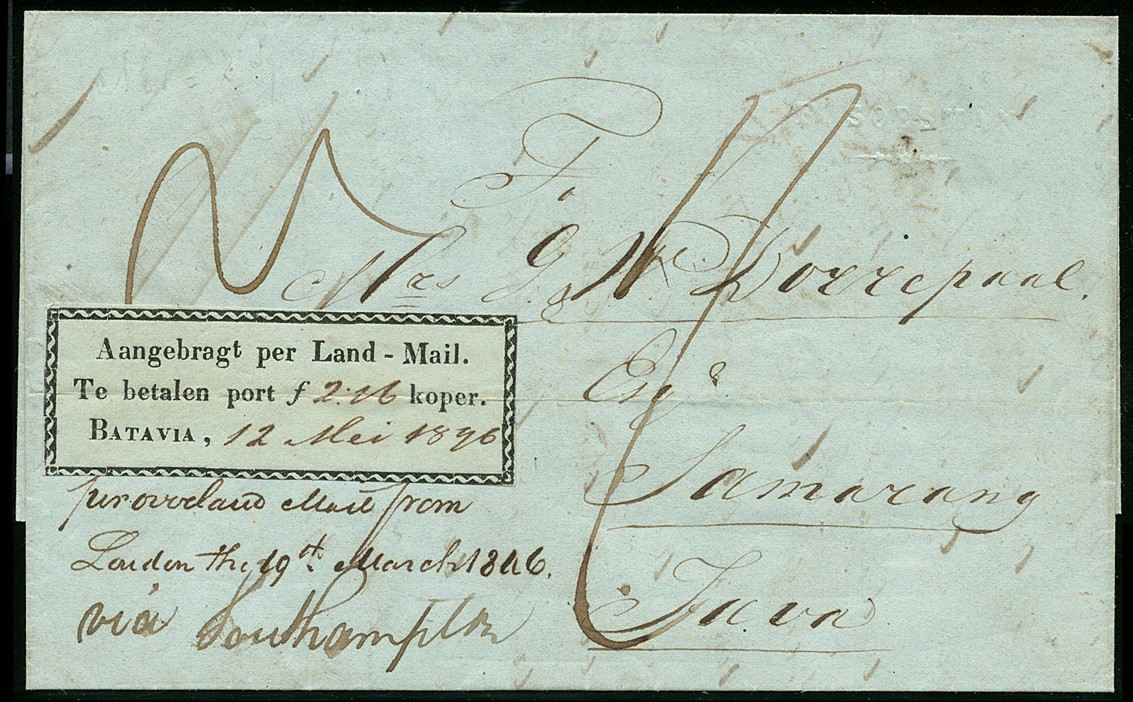 To
Mrs G. Wr. Dorrepaal.
Esqr
Samarang
Java
Aangebragt per Land-Mail.
Te betalen port ƒ 2.16 koper.
BATAVIA, 12 Mei 1846
per overland Mail from
London the 19th March 1846.
via Southampton